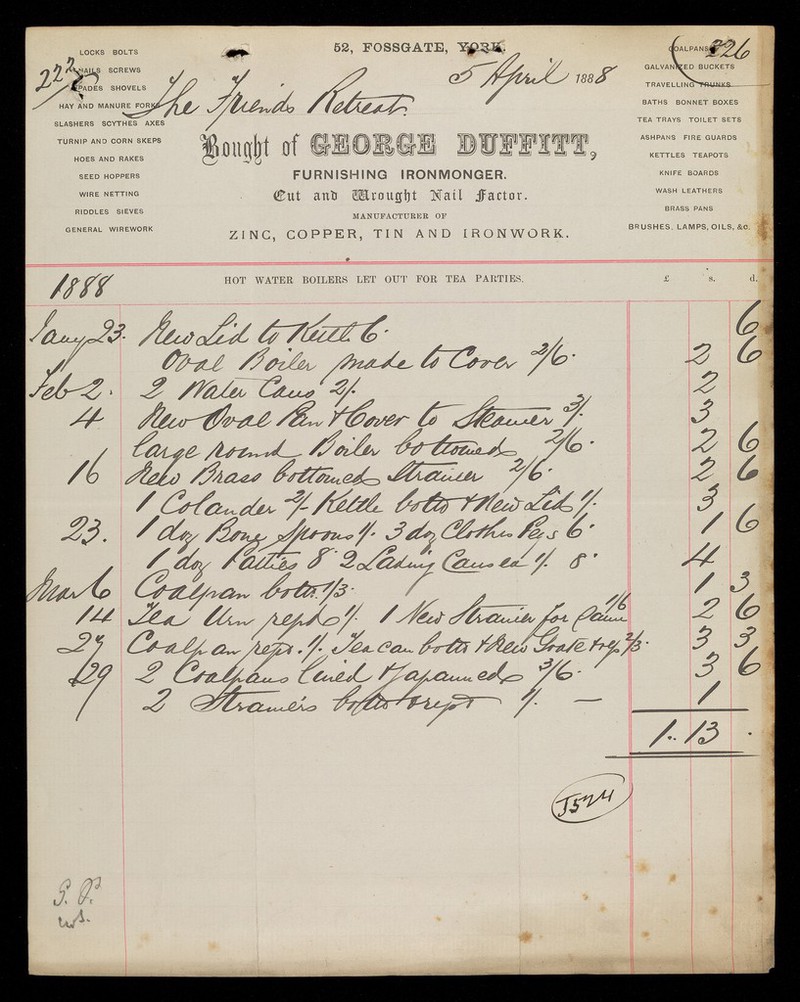 52, FOSSGATE, YORK.
326
222
5 April 1888
The Friends Retreat.
LOCKS BOLTS
NAILS SCREWS
SPADES SHOVELS
HAY AND MANURE FORKS
SLASHERS SCYTHES AXES
TURNIP AND CORN SKEPS
HOES AND RAKES
SEED HOPPERS
WIRE NETTING
RIDDLES SIEVES
GENERAL WIREWORK
Bought of GEORGE DUFFITT,
FURNISHING IRONMONGER.
Cut and Wrought Nail Factor.
MANUFACTURER OF
ZINC, COPPER, TIN AND IRONWORK.
COALPANS
GALVANIZED BUCKETS
TRAVELLING TRUNKS
BATHS BONNET BOXES
TEA TRAYS TOILET SETS
ASHPANS FIRE GUARDS
KETTLES TEAPOTS
KNIFE BOARDS
WASH LEATHERS
BRASS PANS
BRUSHES, LAMPS, OILS, &c.
1888 HOT WATER BOILERS LET OUT FOR TEA PARTIES. £ s. d.
Jany 23. New Lid to Kettle 6. 6
Oval Boiler made to Cover 2/6. 2 6
Feb 2. 2 Water Cans 2/. 2
4 New Oval Pan & Cover to Steamer 3/. 3
large round Boiler bottomed 2/6. 2 6
16 New Brass bottomed Strainer 2/6. 2 6
1 Colander 2/- Kettle bottd & New Lid 1/. 3
23. 1 doz Bone Spoons 1/. 3 doz Clothes Pegs 6. 1 6
1 doz Patties 8 2 Lading Cans ea 1/. 8. 4
Mar 6 Coalpan bottd. 1/3. 1 3
14 Tea Urn repd 1/. 1 New Strainer for 1/6 2 6
27 Coalpan repd. 1/. Tea can bottd & New Grate & rep 2/3. 3 3
29 2 Coalpans lined & Japanned 3/6. 3 6
2 Strainers bottd & rept 1/. — 1
1.. 13 .
J524